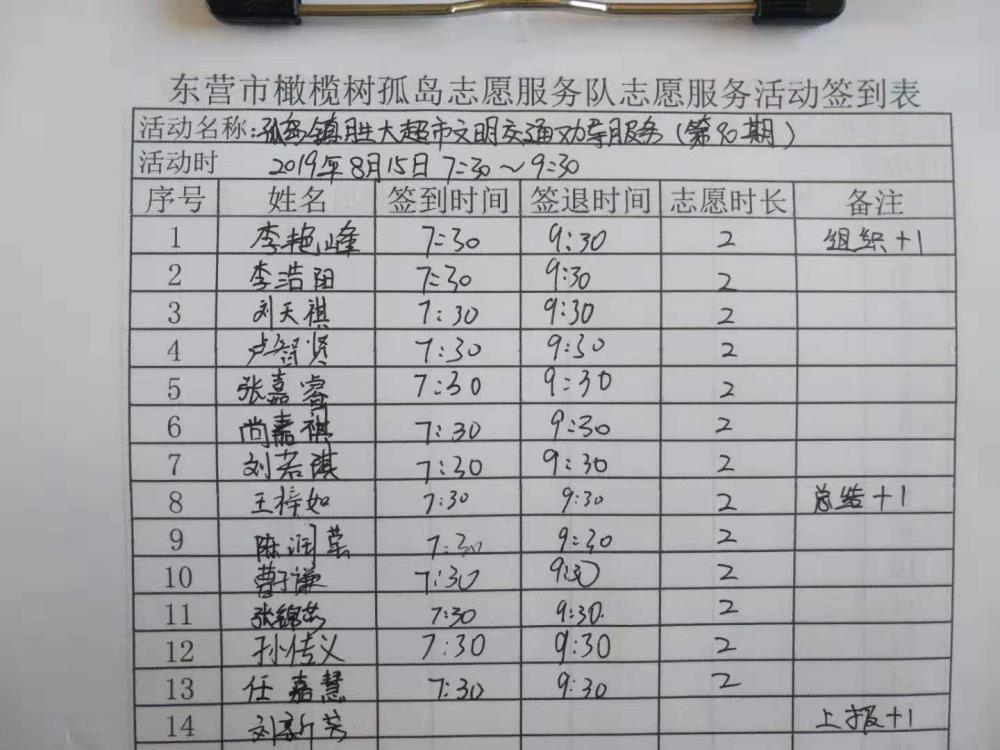 东营市橄榄树孤岛志愿服务队志愿服务活动签到表
活动名称:孤岛镇胜大超市文明交通劝导服务(第90期)
活动时 2019年8月15日 7:30~9:30
序号 姓名 签到时间 签退时间 志愿时长 备注
1 李艳峰 7:30 9:30 2 组织+1
2 李浩阳 7:30 9:30 2
3 刘天祺 7:30 9:30 2
4 卢智贤 7:30 9:30 2
5 张嘉睿 7:30 9:30 2
6 尚嘉祺 7:30 9:30 2
7 刘若琪 7:30 9:30 2
8 王梓如 7:30 9:30 2 总结+1
9 陈润 7:30 9:30 2
10 曹子谦 7:30 9:30 2
11 张锦 7:30 9:30 2
12 孙传义 7:30 9:30 2
13 任嘉慧 7:30 9:30 2
14 刘新芳 上报+1